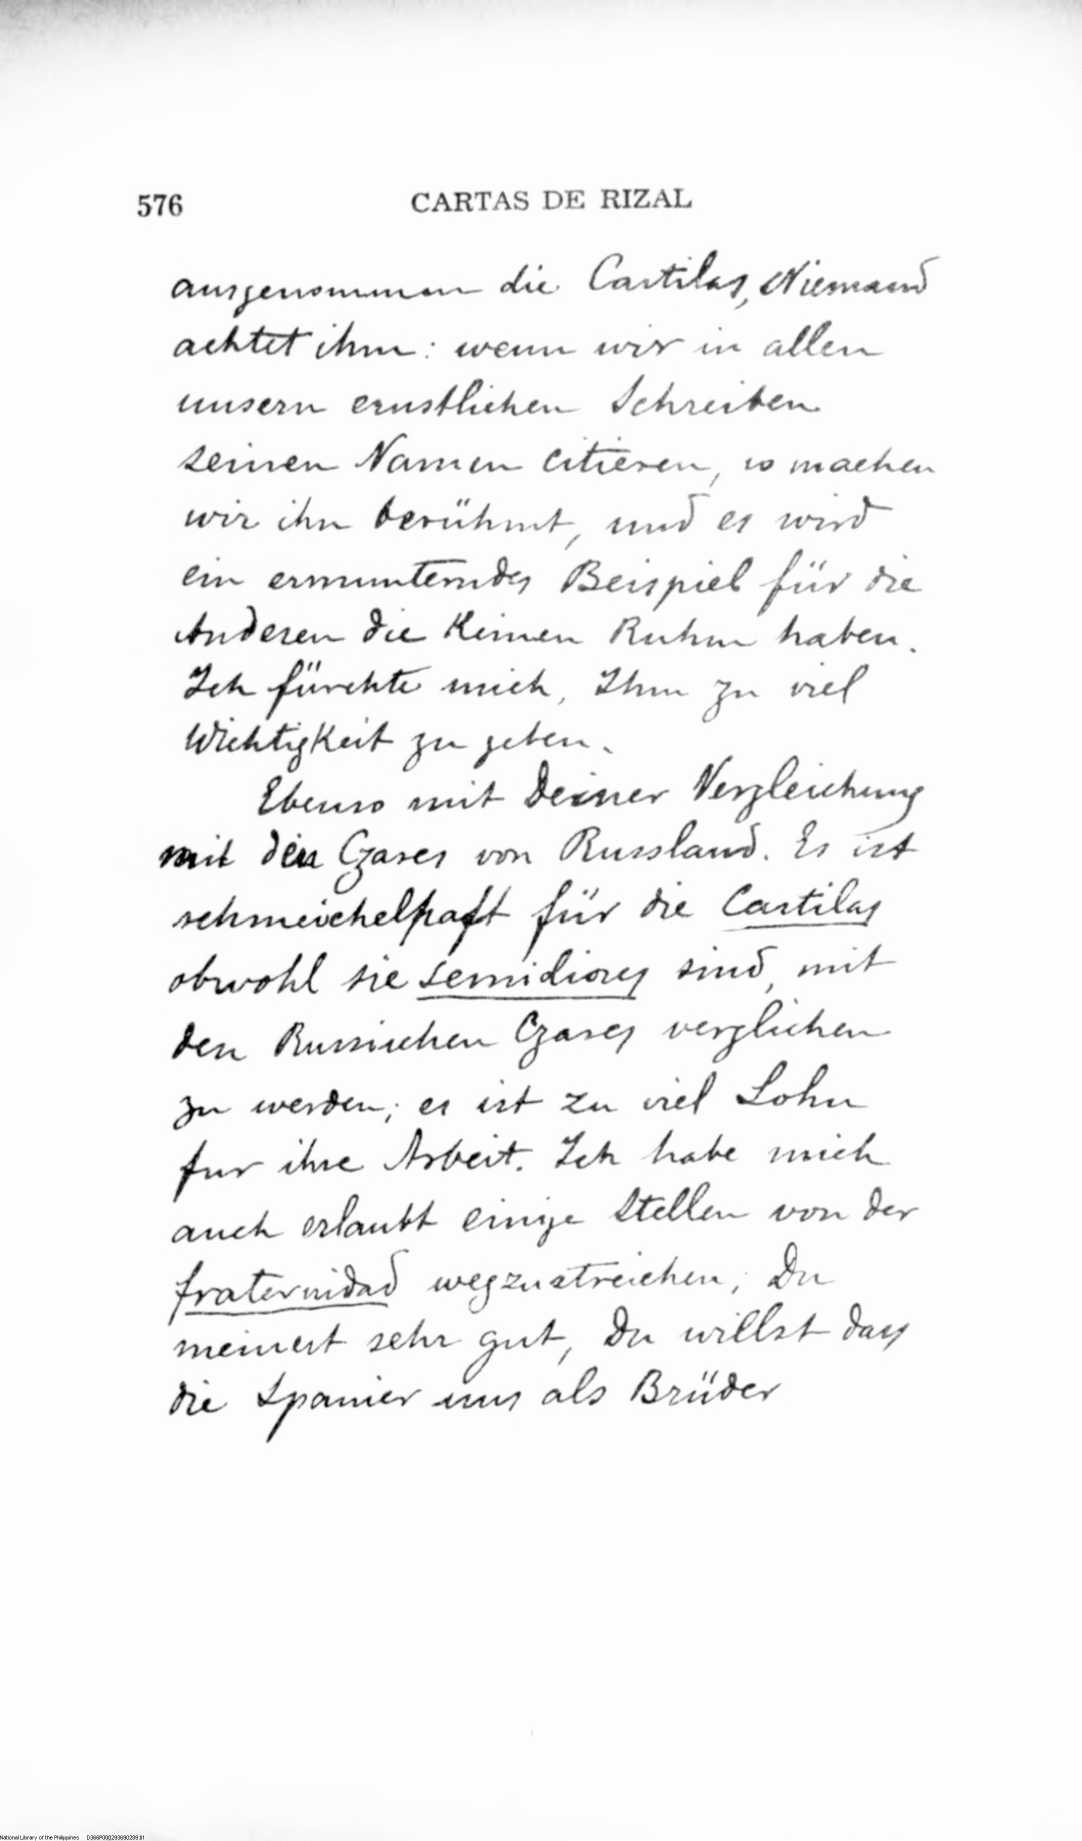 576 CARTAS DE RIZAL
ausgenommen die Castilas, Niemand
achtet ihm: wenn wir in allen
unsern ernstlichen Schreiben
seinen Namen citieren, so machen
wir ihn berühmt, und es wird
ein ermunterndes Beispiel für die
Anderen die keinen Ruhm haben.
Ich fürchte mich, Ihm zu viel
Wichtigkeit zu geben.
Ebenso mit Deiner Vergleichung
mit den Czares von Russland. Es ist
schmeichelhaft für die Castilas
obwohl sie semidioses sind, mit
den Russischen Czares verglichen
zu werden; es ist zu viel Lohn
fur ihre Arbeit. Ich habe mich
auch erlaubt einige Stellen von der
fraternidad wegzustreichen; Du
meinest sehr gut, Du willst dass
die Spanier uns als Brüder
National Library of the Philippines